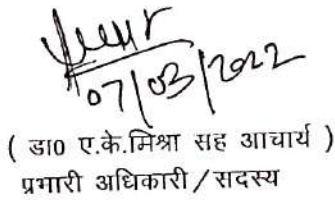 07/03/2022
( डा0 ए.के.मिश्रा सह आचार्य )
प्रभारी अधिकारी/सदस्य